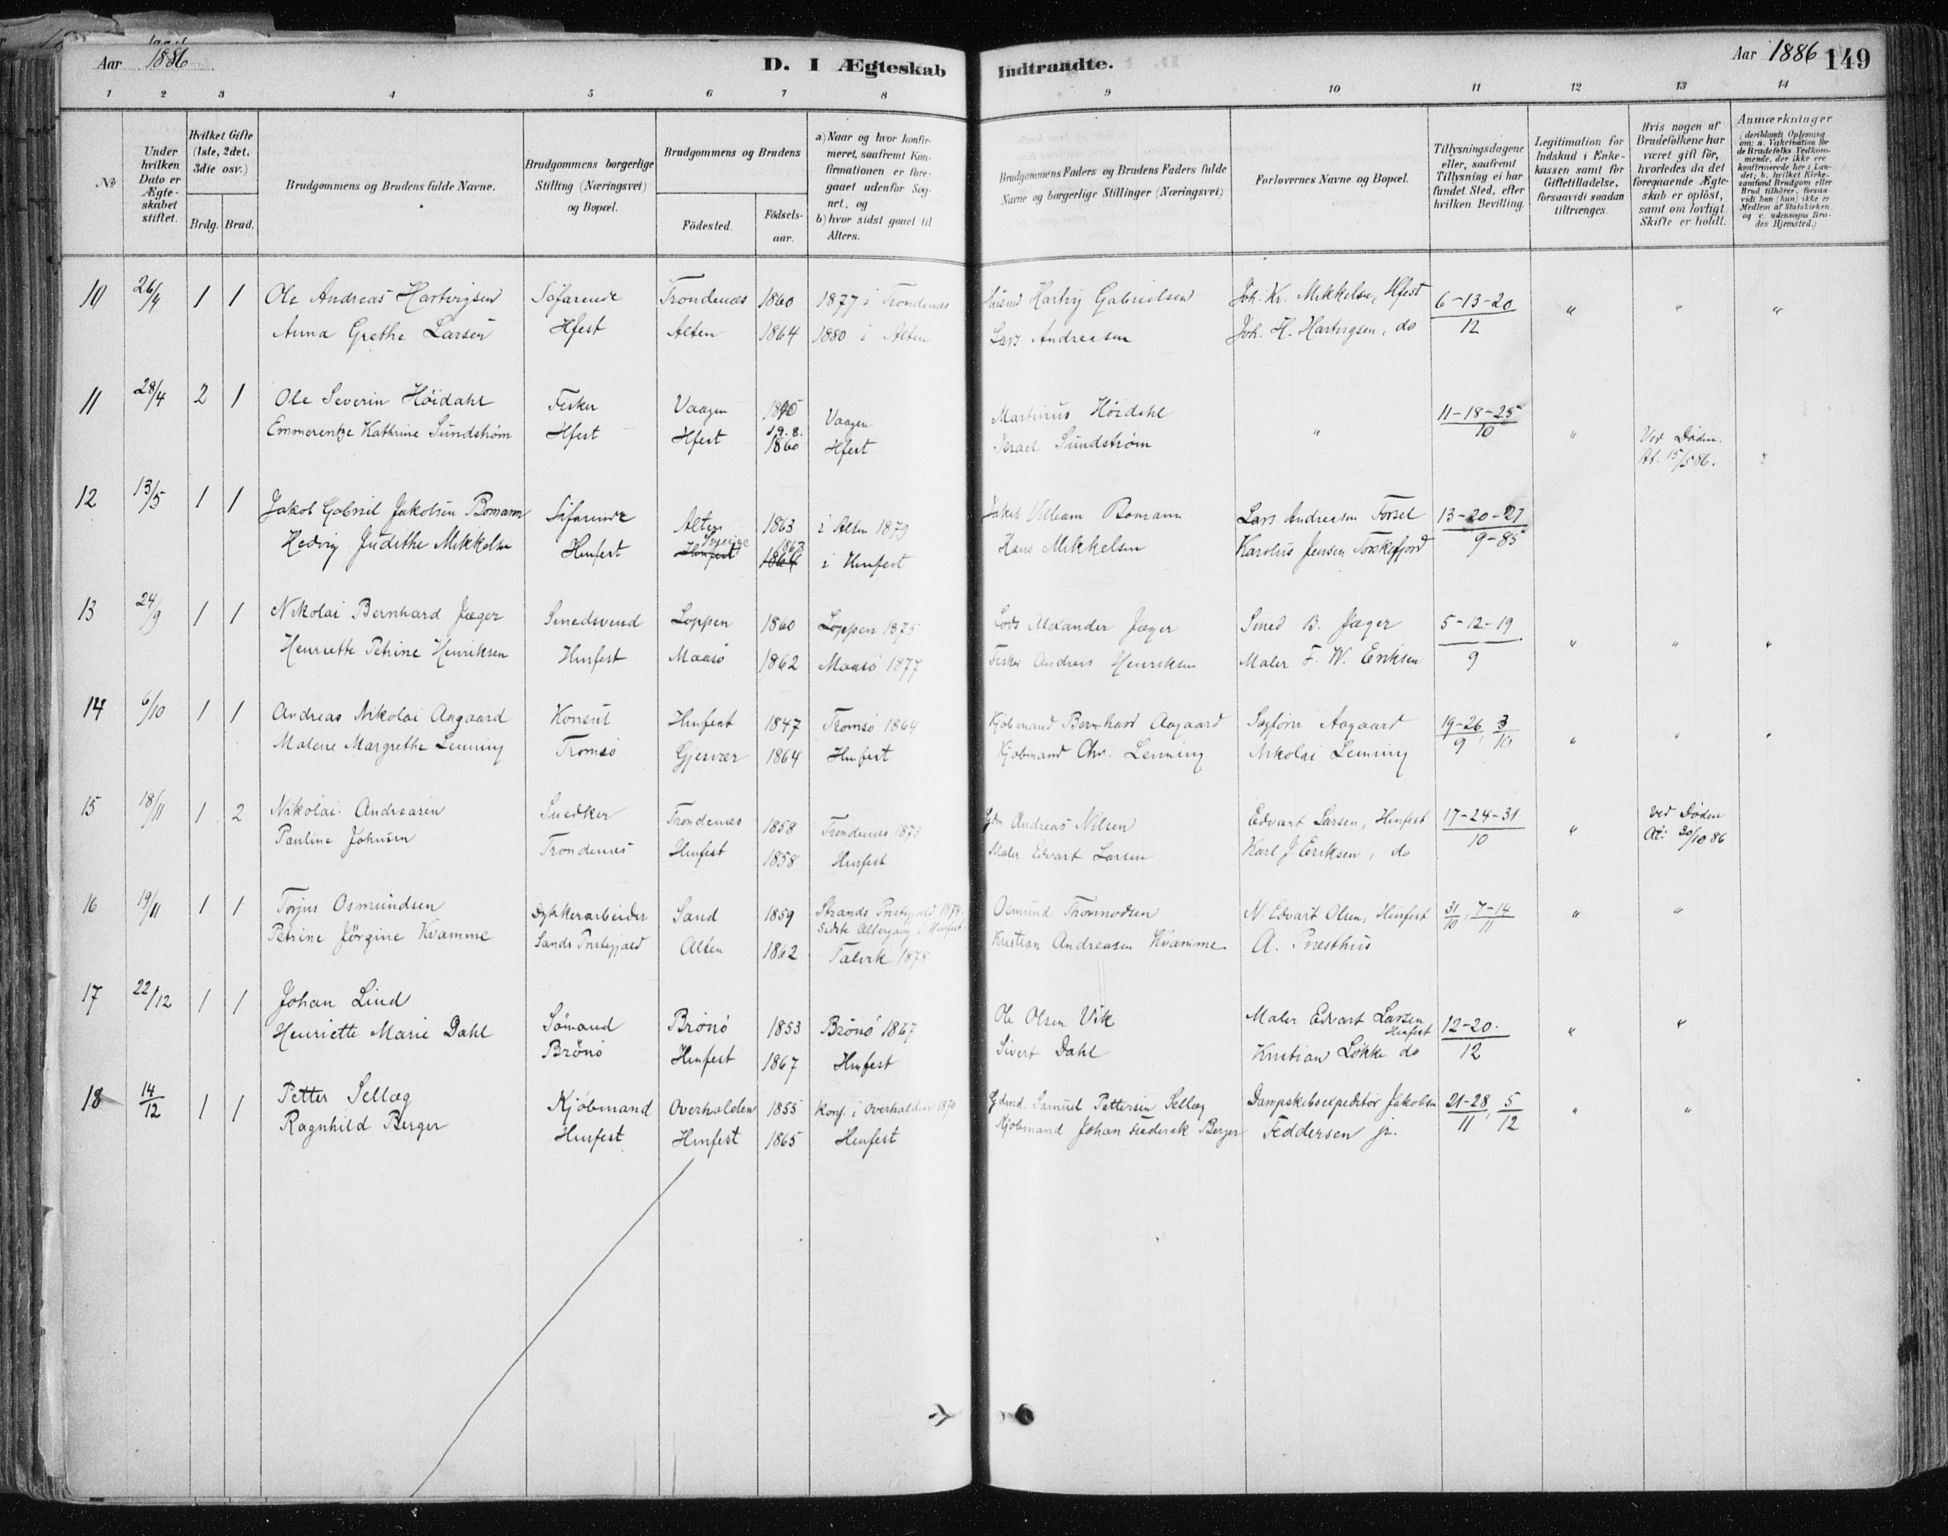 Aar 1886 D. I Ægteskab Indtraadte. Aar 1886 149
1 2 3 4 5 6 7 8 9 10 11 12 13 14
№
Under hvilken Dato er Ægteskabet stiftet.
Hvilket Gifte (1ste, 2det, 3die osv.)
Brdg. Brud.
Brudgommens og Brudens fulde Navne.
Brudgommens borgerlige Stilling (Næringsvei) og Bopæl.
Brudgommens og Brudens
Fødested. Fødselsaar.
a) Naar og hvor konfirmeret, saafremt Konfirmationen er foregaaet udenfor Sognet, og
b) hvor sidst gaaet til Alters.
Brudgommens Faders og Brudens Faders fulde Navne og borgerlige Stillinger (Næringsvei)
Forlovernes Navne og Bopæl.
Tillysningsdagene eller, saafremt Tillysning ei har fundet Sted, efter hvilken Bevilling.
Legitimation for Indskud i Enkekassen samt for Giftetilladelse, forsaavidt saadan tiltrænges.
Hvis nogen af Brudefolkene har været gift før, hvorledes da det foregaaende Ægteskab er opløst, samt om lovligt Skifte er holdt.
Anmærkninger (deriblandt Oplysning om: a. Vakcination for de Brudefolks Vedkommende, der ikke ere konfirmerede her i Landet; b. hvilket Kirkesamfund Brudgom eller Brud tilhører, forsaavidt han (hun) ikke er Medlem af Statskirken, og c. udensogns Brudes Hjemsted.)
10 26/4 1 1 Ole Andreas Hartvigsen Söfarende Trondenæs 1860 1877 i Trondenæs Husmd Hartvig Gabrielsen Joh. Kr. Mikkelsen, Hfest 6-13-20 " " "
Anna Grethe Larsen Hfest Alten 1864 1880 i Alten Lars Andreasen Joh. H. Hartvigsen, do 12
11 28/4 2 1 Ole Severin Höidahl Fisker Vaagen Vaagen Martinus Höidahl " 11-18-25 "
Emmerentze Kathrine Sundstrøm Hfest Hfest 1860 Hfest Israel Sundstrøm 10 Ved Døden. At. 15/5 86. "
12 13/5 1 1 Jakob Gabriel Jakobsen Bomann Söfarende Alten 1863 i Alten 1879 Jakob William Bomann Lars Andreasen Forsel 13-20-27
Hedvig Judithe Mikkelsen Hmfest Sverige Hmfest 1863 1864 i Hmfest Hans Mikkelsen Karolus Jensen Torskefjord 9-85
13 24/9 1 1 Nikolai Bernhard Jæger Smedsvend Loppen 1860 Loppen 1875 Lods Alexander Jæger Smed B. Jæger 5-12-19 " " "
Henriette Petrine Henriksen Hmfest Maasö 1862 Maasö 1877 Fisker Andreas Henriksen Maler F. W. Eriksen 9
14 6/10 1 1 Andreas Nikolai Aagaard Konsul Hmfest 1847 Tromsö 1864 Kjöbmand Bernhard Aagaard Sagförer Aagaard 19-26/9, 3/10 " " "
Malene Margrethe Lenning Tromsö Gjesvær 1864 Hmfest Kjöbmand Chr. Lenning Nikolai Lenning
15 18/11 1 2 Nikolai Andreasen Snedker Trondenæs 1858 Trondenæs 1873 Gdm Andreas Nilsen Edvart Larsen, Hmfest 17-24-31 " ved Døden
Pauline Johnsen Trondenæs Hmfest 1858 Hmfest Maler Edvart Larsen Karl J. Eriksen, do 10 At: 30/10 86
16 19/11 1 1 Torjus Osmundsen Dykkerarbeider Sand 1859 Strands Prstgjæld 1874. Sidste Altergang i Hmfest. Osmund Thormodsen N. Edvart Olsen, Hmfest 31/10, 7-14/11 " "
Petrine Jörgine Kvamme Sands Prstegjæld Alten 1862 Talvik 1878 Kristian Andreasen Kvamme A. Presthus
17 22/12 1 1 Johan Lind Sömand Brönö 1853 Brönö 1867 Ole Olsen Vik Maler Edvart Larsen Hmfest 12-20. " "
Henriette Marie Dahl Brönö Hmfest 1867 Hmfest Sivert Dahl Kristian Løkke do 12
18 14/12 1 1 Petter Sellæg Kjöbmand Overhalden 1855 Konf. i Overhalden 1870 Gdmd. Samuel Pettersen Sellæg Dampskibsexpeditör Jakobsen 21-28/11, 5/12 " "
Ragnhild Berger Hmfest Hmfest 1865 Hmfest Kjöbmand Johan Frederik Berger Feddersen jr.